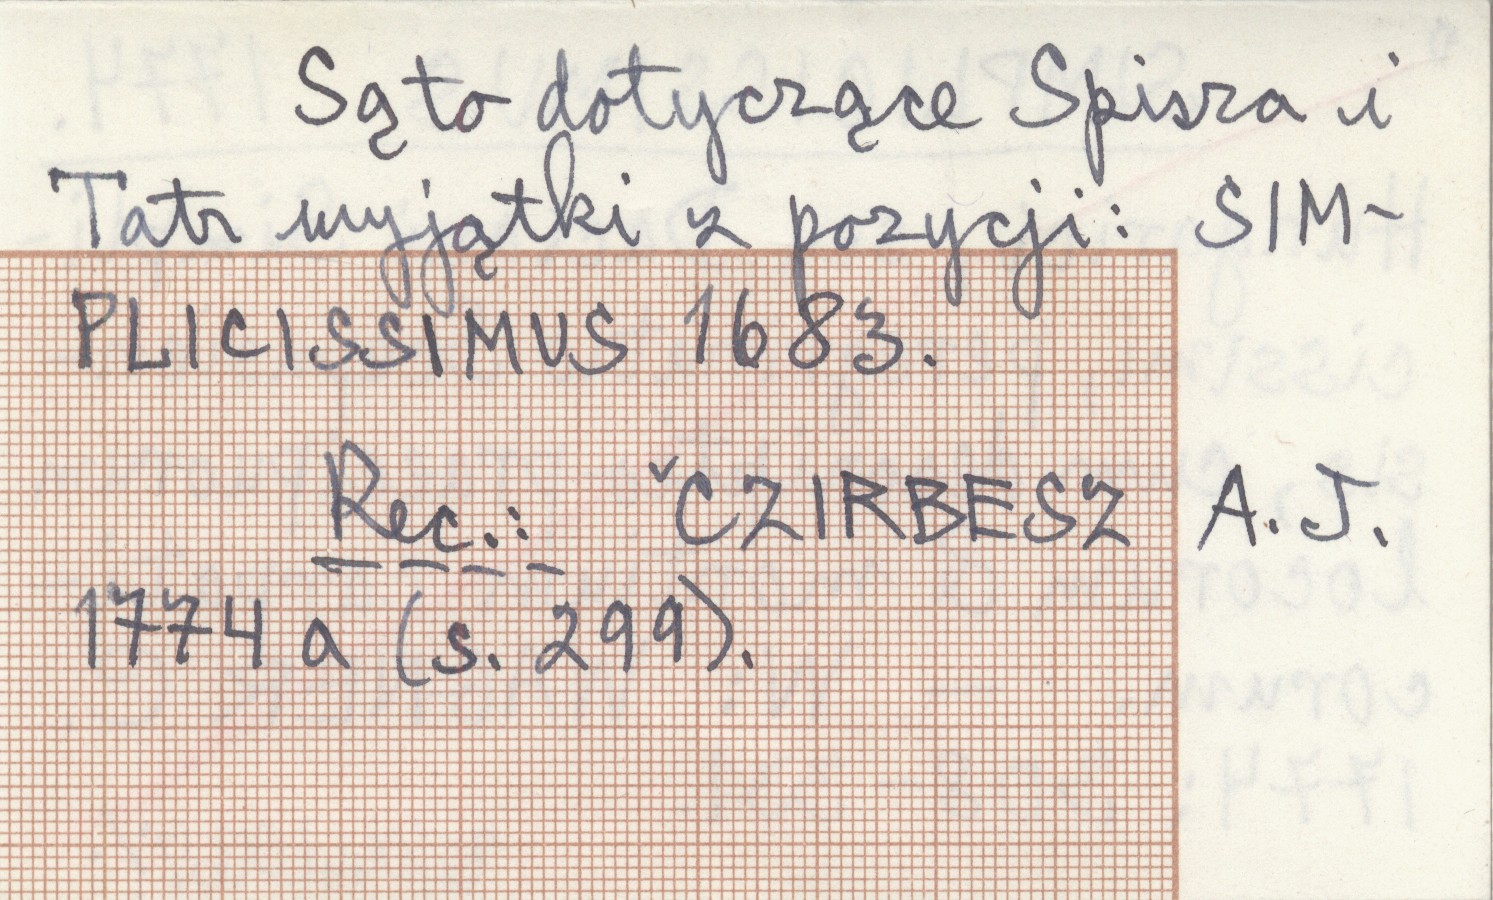 Są to dotyczące Spisza i
Tatr wyjątki z pozycji: SIM-
PLICISSIMUS 1683.
Rec.: ČZIRBESZ A.J.
1774 a (s. 299).